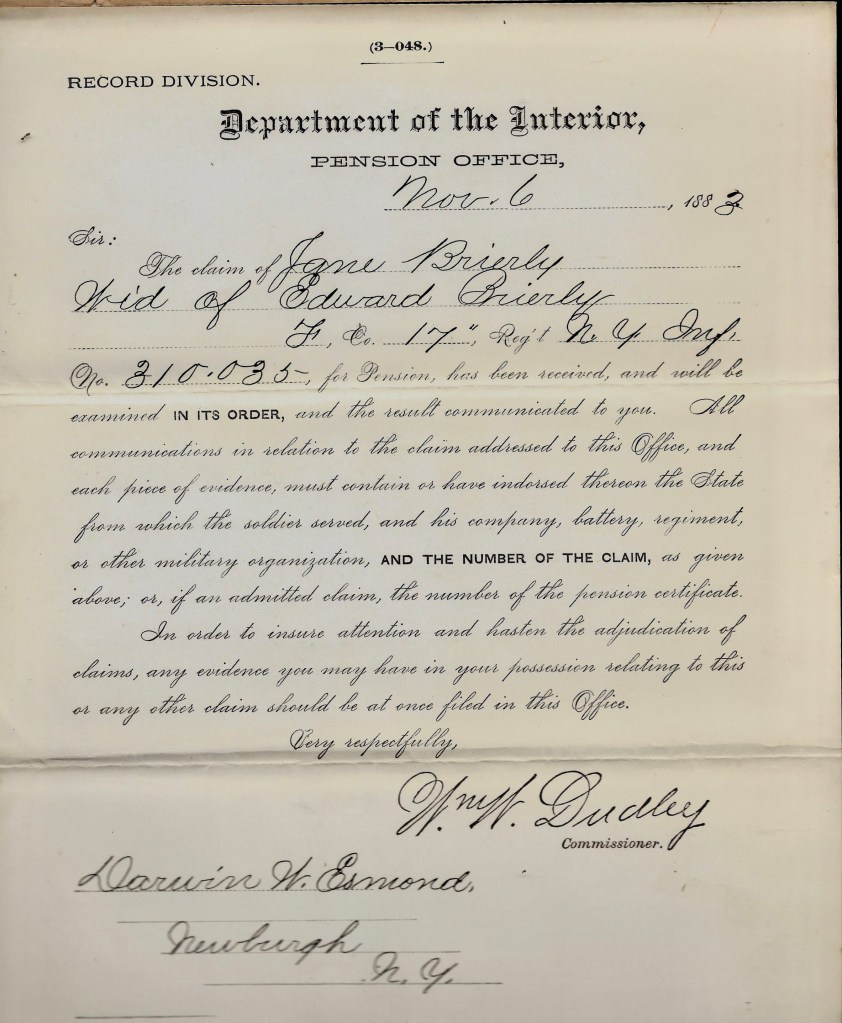 (3—048.)
RECORD DIVISION.
Department of the Interior,
PENSION OFFICE,
Nov. 6, 1883
Sir:
The claim of Jane Brierly
Wid of Edward Brierly
F, Co. 17", Reg't N. Y Inf.
No. 310.035, for Pension, has been received, and will be
examined IN ITS ORDER, and the result communicated to you. All
communications in relation to the claim addressed to this Office, and
each piece of evidence, must contain or have indorsed thereon the State
from which the soldier served, and his company, battery, regiment,
or other military organization, AND THE NUMBER OF THE CLAIM, as given
above; or, if an admitted claim, the number of the pension certificate.
In order to insure attention and hasten the adjudication of
claims, any evidence you may have in your possession relating to this
or any other claim should be at once filed in this Office.
Very respectfully,
Wm W. Dudley
Commissioner.
Darwin W. Esmond.
Newburgh
N. Y.